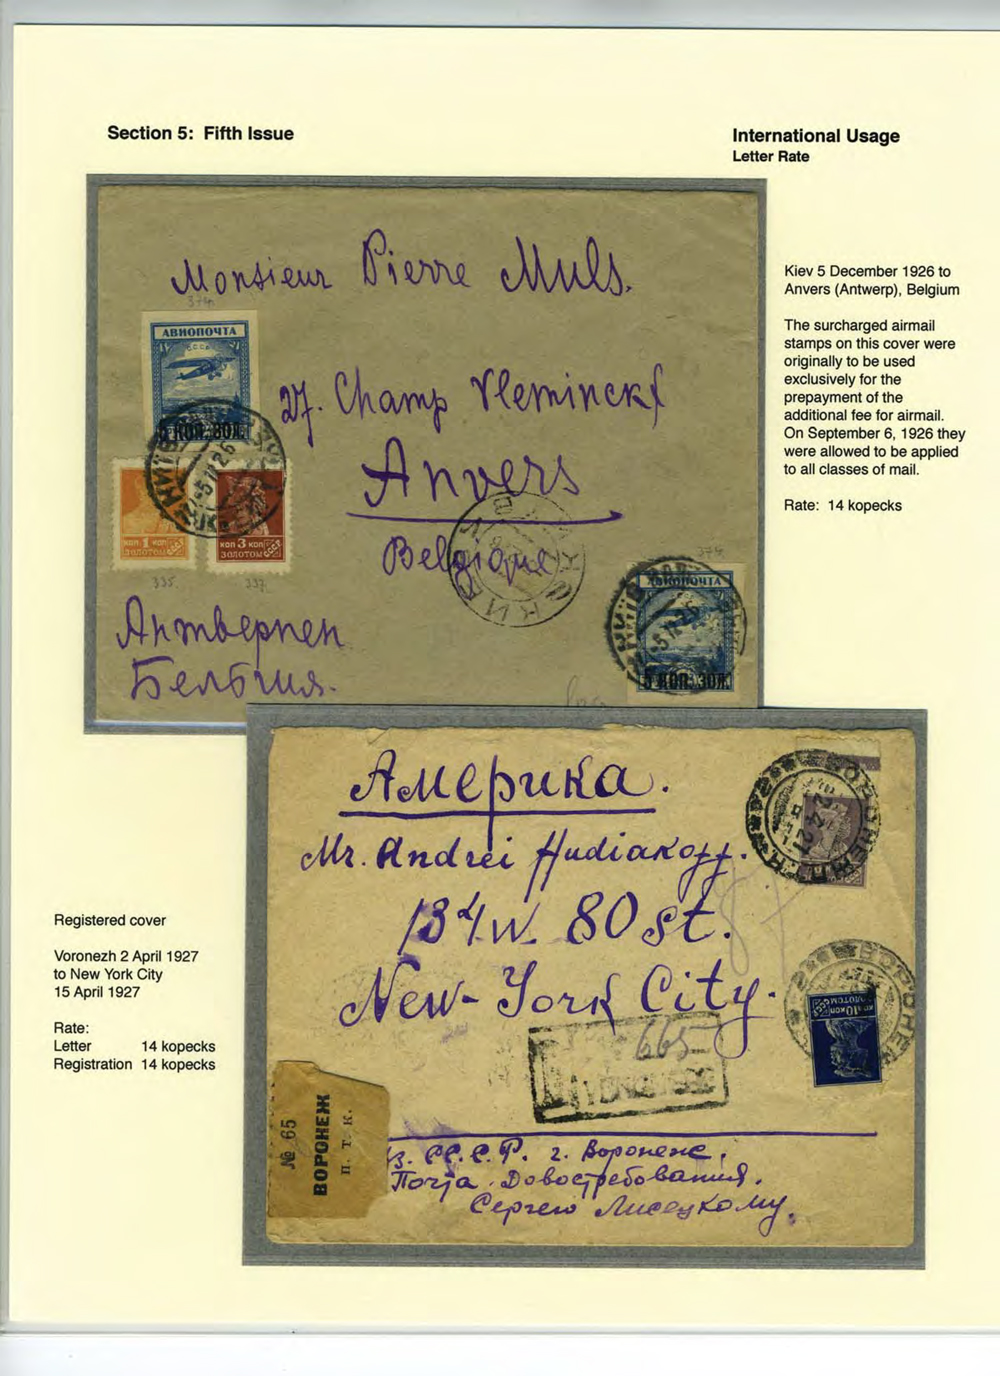 Section 5: Fifth Issue
International Usage
Letter Rate
Monsieur Pierre Muls.
374.
АВИОПОЧТА
С.С.С.Р.
5 КОП. ЗОЛ.
27. Champ Vleminckx
Anvers
Belgique
КОП. 1 КОП.
ЗОЛОТОМ
КОП 3 КОП
ЗОЛОТОМ
335.
337.
374.
АВИОПОЧТА
5 КОП. ЗОЛ.
Антверпен
Бельгия.
Kiev 5 December 1926 to
Anvers (Antwerp), Belgium
The surcharged airmail
stamps on this cover were
originally to be used
exclusively for the
prepayment of the
additional fee for airmail.
On September 6, 1926 they
were allowed to be applied
to all classes of mail.
Rate: 14 kopecks
Америка.
Mr. Andrei Hudiakoff.
134 W. 80 st.
New-York City.
665
ВОРОНЕЖ
10 КОП
ЗОЛОТОМ
№ 65
ВОРОНЕЖ
П. Т. К.
Из. СС.С.Р. г. Воронеж.
Почта. Довостребования.
Сергею Лисецкому.
Registered cover
Voronezh 2 April 1927
to New York City
15 April 1927
Rate:
Letter 14 kopecks
Registration 14 kopecks